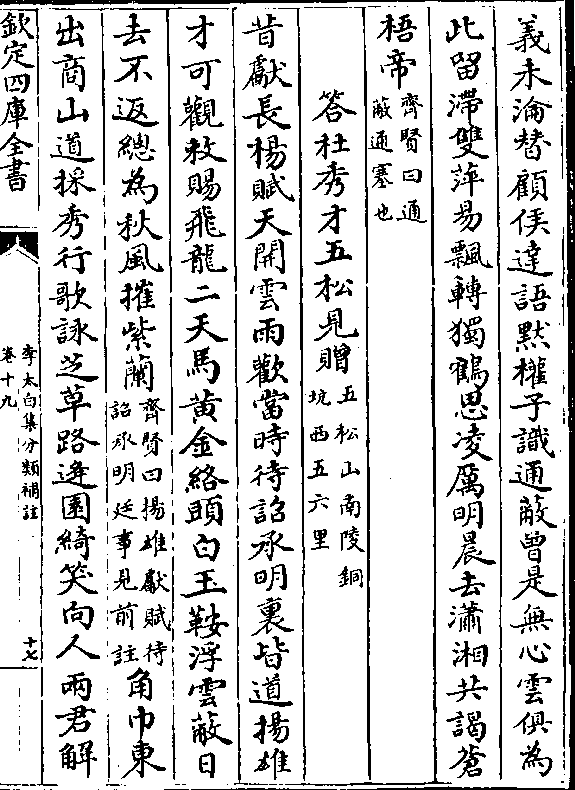 義未淪替顧侯達語默權子識通蔽曾是無心雲俱為
此留滯雙萍易飄轉獨鶴思凌厲明晨去瀟湘共謁蒼
梧帝齊賢曰通
蔽通塞也
答杜秀才五松見贈五松山南陵銅
坑西五六里
昔獻長楊賦天開雲雨歡當時待詔承明裏皆道揚雄
才可觀敕賜飛龍二天馬黃金絡頭白玉鞍浮雲蔽日
去不返總為秋風摧紫蘭齊賢曰揚雄獻賦待
詔承明廷事見前註角巾東
出商山道採秀行歌詠芝草路逄園綺笑向人兩君解
欽定四庫全書
李太白集分類補註
卷十九
十七